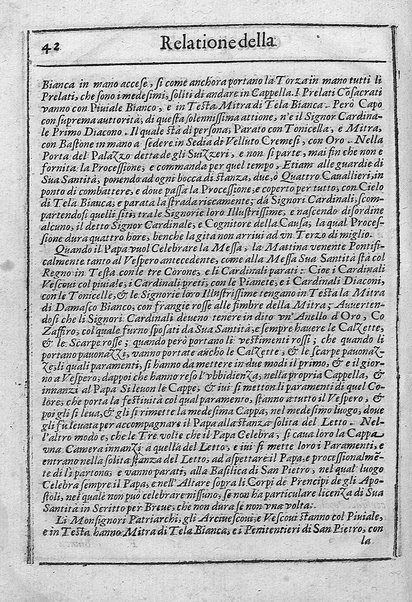 42 Relatione della
Bianca in mano accese, si come anchora portano la Torza in mano tutti li
Prelati, che sono i medesimi, soliti di andare in Cappella. I Prelati Cosacrati
vanno con Piuiale Bianco, e in Testa Mitra di Tela Bianca. Però Capo
con suprema autorità, di questa solennissima attione, n'è il Signor Cardina-
le Primo Diacono. Il quale stà di persona, Parato con Tonicella, e Mitra,
con Bastone in mano a sedere in Sedia di Velluto Cremesi, con Oro. Nella
Porta del Palazzo detta de gli Suizzeri, e non si parte, mai fin che non è
fornita la Processione, e commanda per quel tempo, Etiam alle guardie di
Sua Santità, ponendo ad ogni bocca di stanza, due, ò Quattro Cauallieri, in
ponto di combattere, e doue passa la Processione, e coperto per tutto, con Cielo
di Tela Bianca, e parata la strada riccamente; dà Signori Cardinali, scom-
partendosi quelli siti, tra le Signorie loro Illustrissime, e nascendo disordine
alcuno, il detto Signor Cardinale, e Cognitore della Causa, la qual Proces-
sione dura quattro hore, benche la gita non arriui ad vn Terzo di miglio.
Quando il Papa vuol Celebrare la Messa, la Mattina venente Pontifi-
calmente tanto al Vespero antecedente, come alla Messa Sua Santità stà col
Regno in Testa con le tre Corone, e li Cardinali parati: Cioè i Cardinali
Vescoui col piuiale, i Cardinali preti, con le Pianete, e i Cardinali Diaconi,
con le Tonicelle, & le Signorie loro Illustrissime tengano in Testa la Mitra
di Damasco Bianco, con frangie rosse alle fimbre della Mitra; Auuerten-
dosi che li Signori Cardinali deuono tenere in dito vn'Anello d'Oro, Co
Zaffiro, col quale furno sposati da Sua Santità, e sempre hauere le Calzette,
& le Scarpe rosse; quando però portano li vestimenti rossi; che quando li
portano pauonazzi, vanno portate ancho le Calzette, & le scarpe pauonaz-
ze; li quali paramenti, si hanno da mettere in due modi il primo, & è il gior-
no a Vespero, dappoi che hanno reso l'vbbidienza, nella propria Cappella, &
innanzi al Papa Si leuon le Cappe, & iui si metton li paramenti di quel Co-
lore, che porta la festiuità col qual paramento, stanno a tutto il Vespero, &
poi gli si leua, & gli si rimette la medesima Cappa, nel medesimo luogo, doue
gli fu leuata per accompagnare il Papa alla stanza solita del Letto. Nel-
l'altro modo e, che le Tre volte che il Papa Celebra, si caua loro la Cappa
vna Camera innanzi a quella del Letto, e iui si mette loro i Paramenti, e
entrano nella solita stanza del Letto, ad aspettare il Papa, e processionalmē-
te di li partono, e vanno parati, alla Basilica di San Pietro, nel qual luogo
Celebra sempre il Papa, e nell'Altare sopra li Corpi de Prencipi de gli Apo-
stoli, nel quale non può celebrare nissuno, se non ha particulare licenza di Sua
Santità in Scritto per Breue, che non dura se non vna volta.
Li Monsignori Patriarchi, gli Arciuescoui, e Vescoui stanno col Piuiale,
e in Testa hanno Mitra di Tela Bianca, e i Penitentieri di San Pietro, con
la